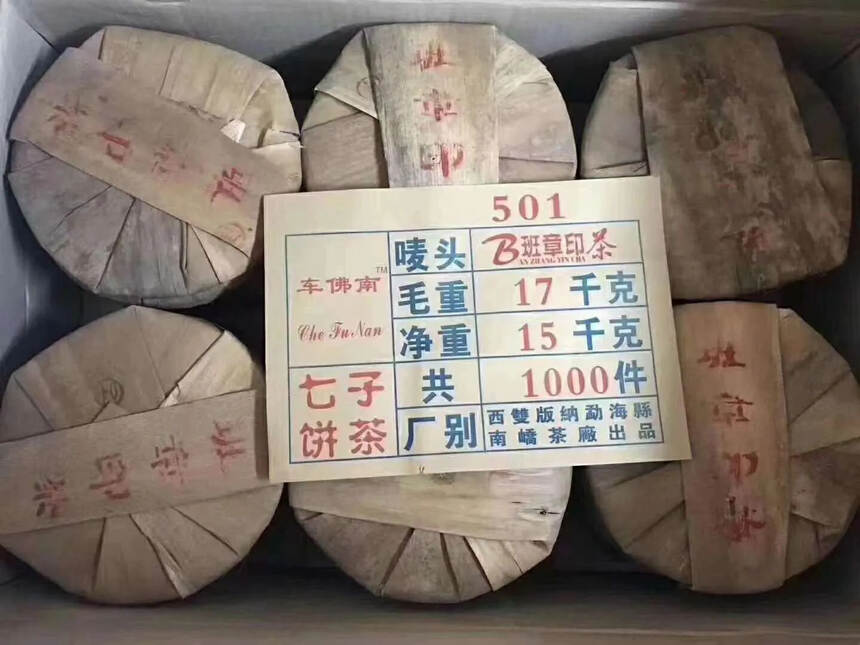 班章印茶
班章印
501
车佛南™
Che Fu Nan
唛头
B班章印茶
AN ZHANG YIN CHA
毛重
17 千克
净重
15 千克
七子
饼茶
共
1000件
厂别
西雙版纳勐海縣
南嶠茶廠出品
班章印茶
班章印茶